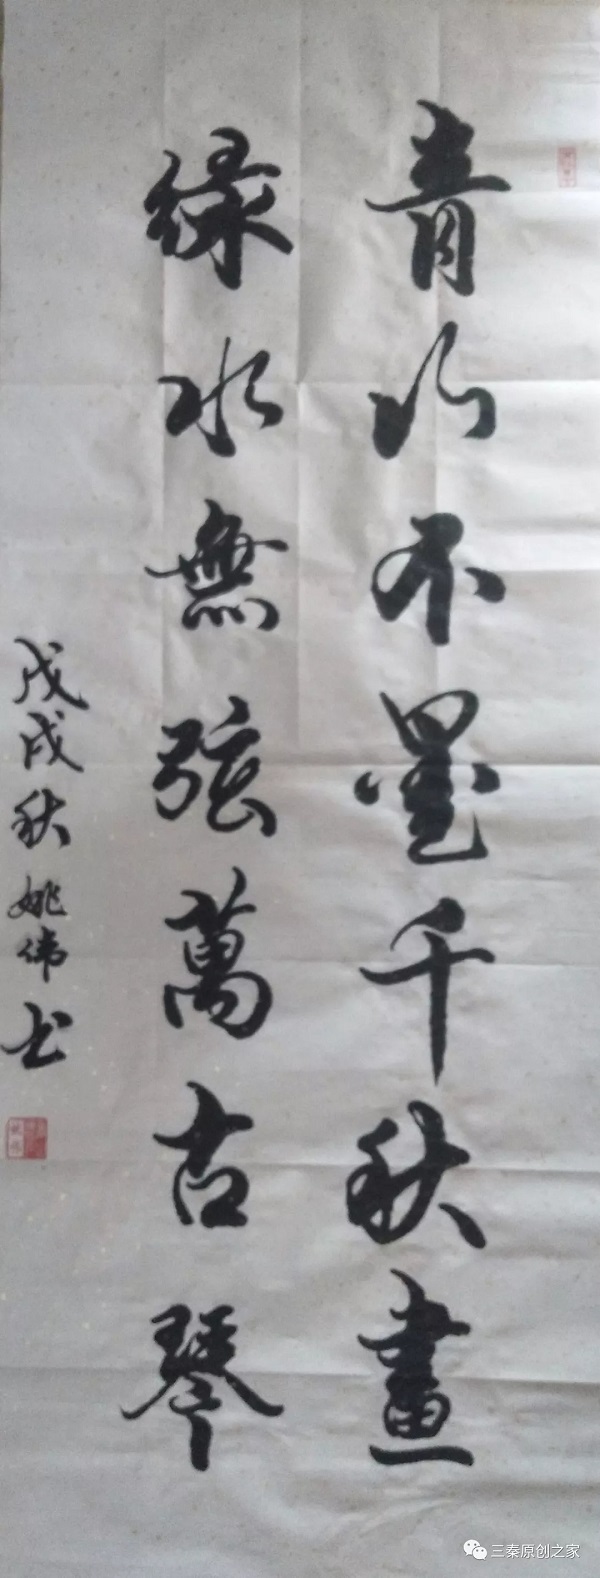 青山不墨千秋畫
綠水無弦萬古琴
戊戌秋姚偉书
三秦原创之家